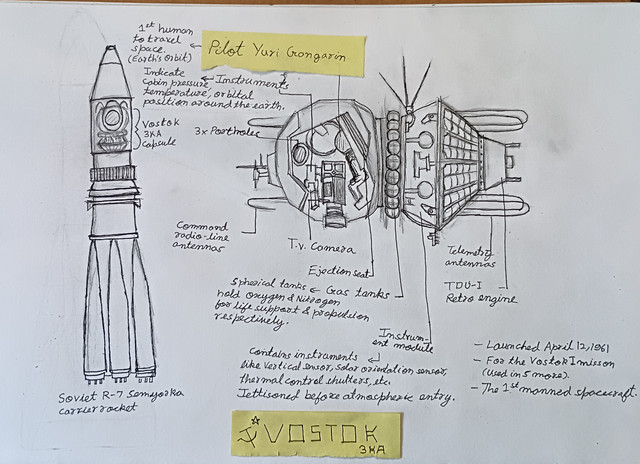 1st human
to travel
space.
(Earth's orbit)
Pilot Yuri Gongarin
Indicate
cabin pressure,
temperature, orbital
position around the earth.
Instruments
Vostok
3KA
Capsule
3x Portholes
Command
radio-line
antennas
T.v. Camera
Ejection seat
Telemetry
antennas
TDU-I
Retro engine
Spherical tanks
hold oxygen & Nitrogen
for life support & propulsion
respectively.
Gas tanks
Instrum-
ent module
Contains instruments
like Vertical sensor, solar oriontation sensor,
thermal control shutters, etc.
Jettisoned before atmospheric entry.
- Launched April 12, 1961
- For the Vostok 1 misson
(Used in 5 more).
- The 1st manned spacecraft.
Soviet R-7 Semyorka
carrier rocket
VOSTOK
3KA